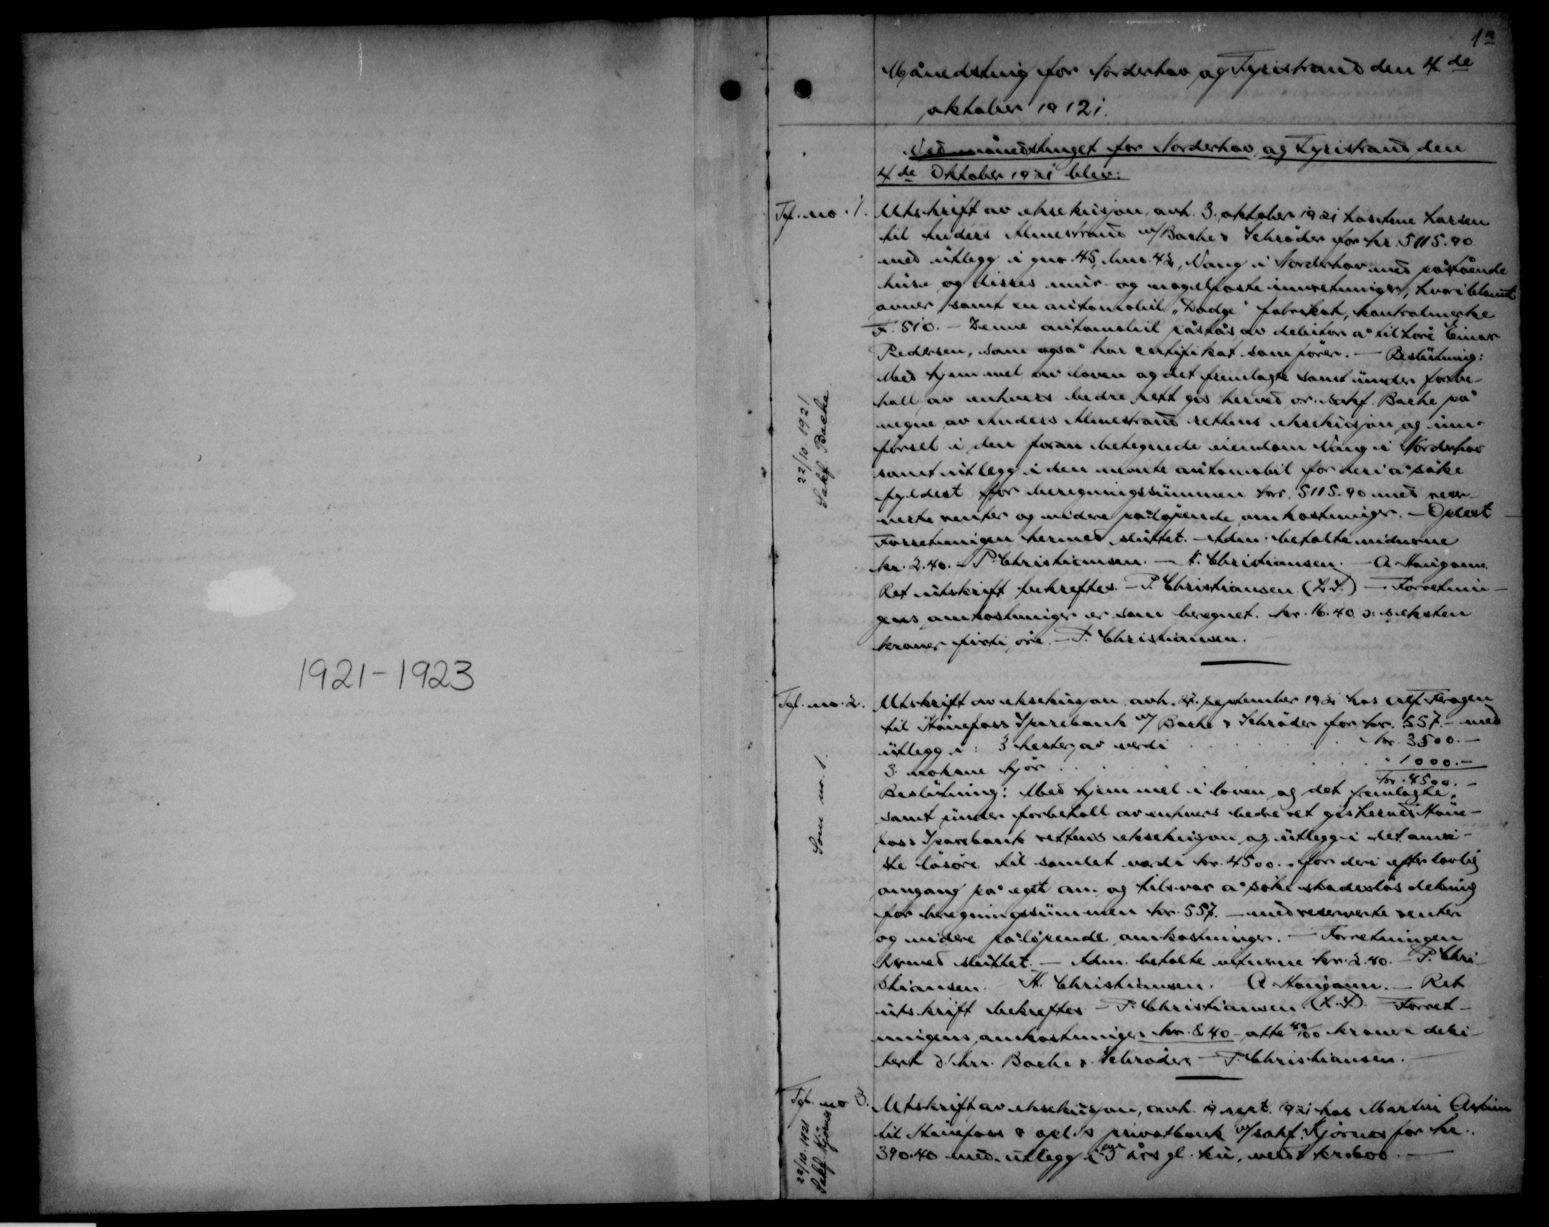 1921-1923
1a
Månedsting for Norderhov og Tyristrand den 4de
oktober 1921.
Ved månedstinget for Norderhov og Tyristrand den
4de Oktober 1921 blev:
Tgf. no. 1. Utskrift av eksekusjon, avh. 3. oktober 1921 hos Larsen
til Anders Almestrand v/Bache & Schrøder for kr. 5115.90
med utlegg i gno. 45, bno. 43, Vang i Norderhov med påstående
huse og disses mur- og nagelfaste innretninger, hvoriblandt
ovner samt en automobil "Dodge" fabrikat, kontrolmerke
F. 510. – Denne automobil påstås av debitor å tilhøre Einar
Pedersen, som også har certifikat som fører. – Beslutning:
Med hjemmel av loven og det fremlagte samt under forbe-
hall av enhvers bedre rett gis herved or. sakf. Bache på
vegne av Anders Almestrand rettens eksekusjon og inn-
førsel i den foran betegnede eiendom Vang i Norderhov
samt utlegg i den nevnte automobil for deri å søke
fyldest for beregningssummen kr. 5115.90 med reser-
verte renter og videre påløpende omkostninger. – Oplest
Forretningen hermed sluttet. – Adm. betalte vidnerne
kr. 2.40. – P. Christiansen. – H. Christiansen. – A. Haugann.
Ret utskrift bekreftes – P. Christiansen (L.S.) – Forretnin-
gens omkostninger er som beregnet kr. 16.40 o: seksten
kroner firti øre. – P. Christiansen.
22/10. 1921
Sakf Bache
Tgf. no. 2. Utskrift av eksekusjon, avh. september 1921 hos
til Hønefoss Sparebank v/ Bache & Schrøder for kr. 557.– med
utlegg i: 3 hester, av verdi kr. 3500.–
3 voksne kjør " 1000.–
kr. 4500.–
Beslutning: Med hjemmel i loven og det fremlagte,
samt under forbehall av enhvers bedre ret gis herved Høne-
foss Sparebank rettens eksekusjon og utlegg i det anvi-
ste løsøre til samlet verdi kr. 4500.– for deri efter lovlig
omgang på eget an- og tilsvar å søke skadesløs dekning
for beregningssummen kr. 557.– med reserverte renter
og videre påløpende omkostninger. – Forretningen
hermed sluttet. – Adm. betalte vidnerne kr. 2.40. – P. Chri-
stiansen. H. Christiansen. A. Haugann. – Ret
utskrift bekreftes – P. Christiansen (L.S.) Forret-
ningens omkostninger kr. 8.40 – otte 40/100 kroner debi-
tert d'hrr. Bache & Schrøder – P. Christiansen. –
Som no. 1.
Tgf. no 3. Utskrift av eksekusjon, avh. 19 sept. 1921 hos Martin
til Hønefoss & opl.s privatbank v/sakf. Kjørnes for kr.
390.40 med utlegg i 5 års gl. ku, verdi kr. 600.–
22/10. 1921
Sakf Kjørnes